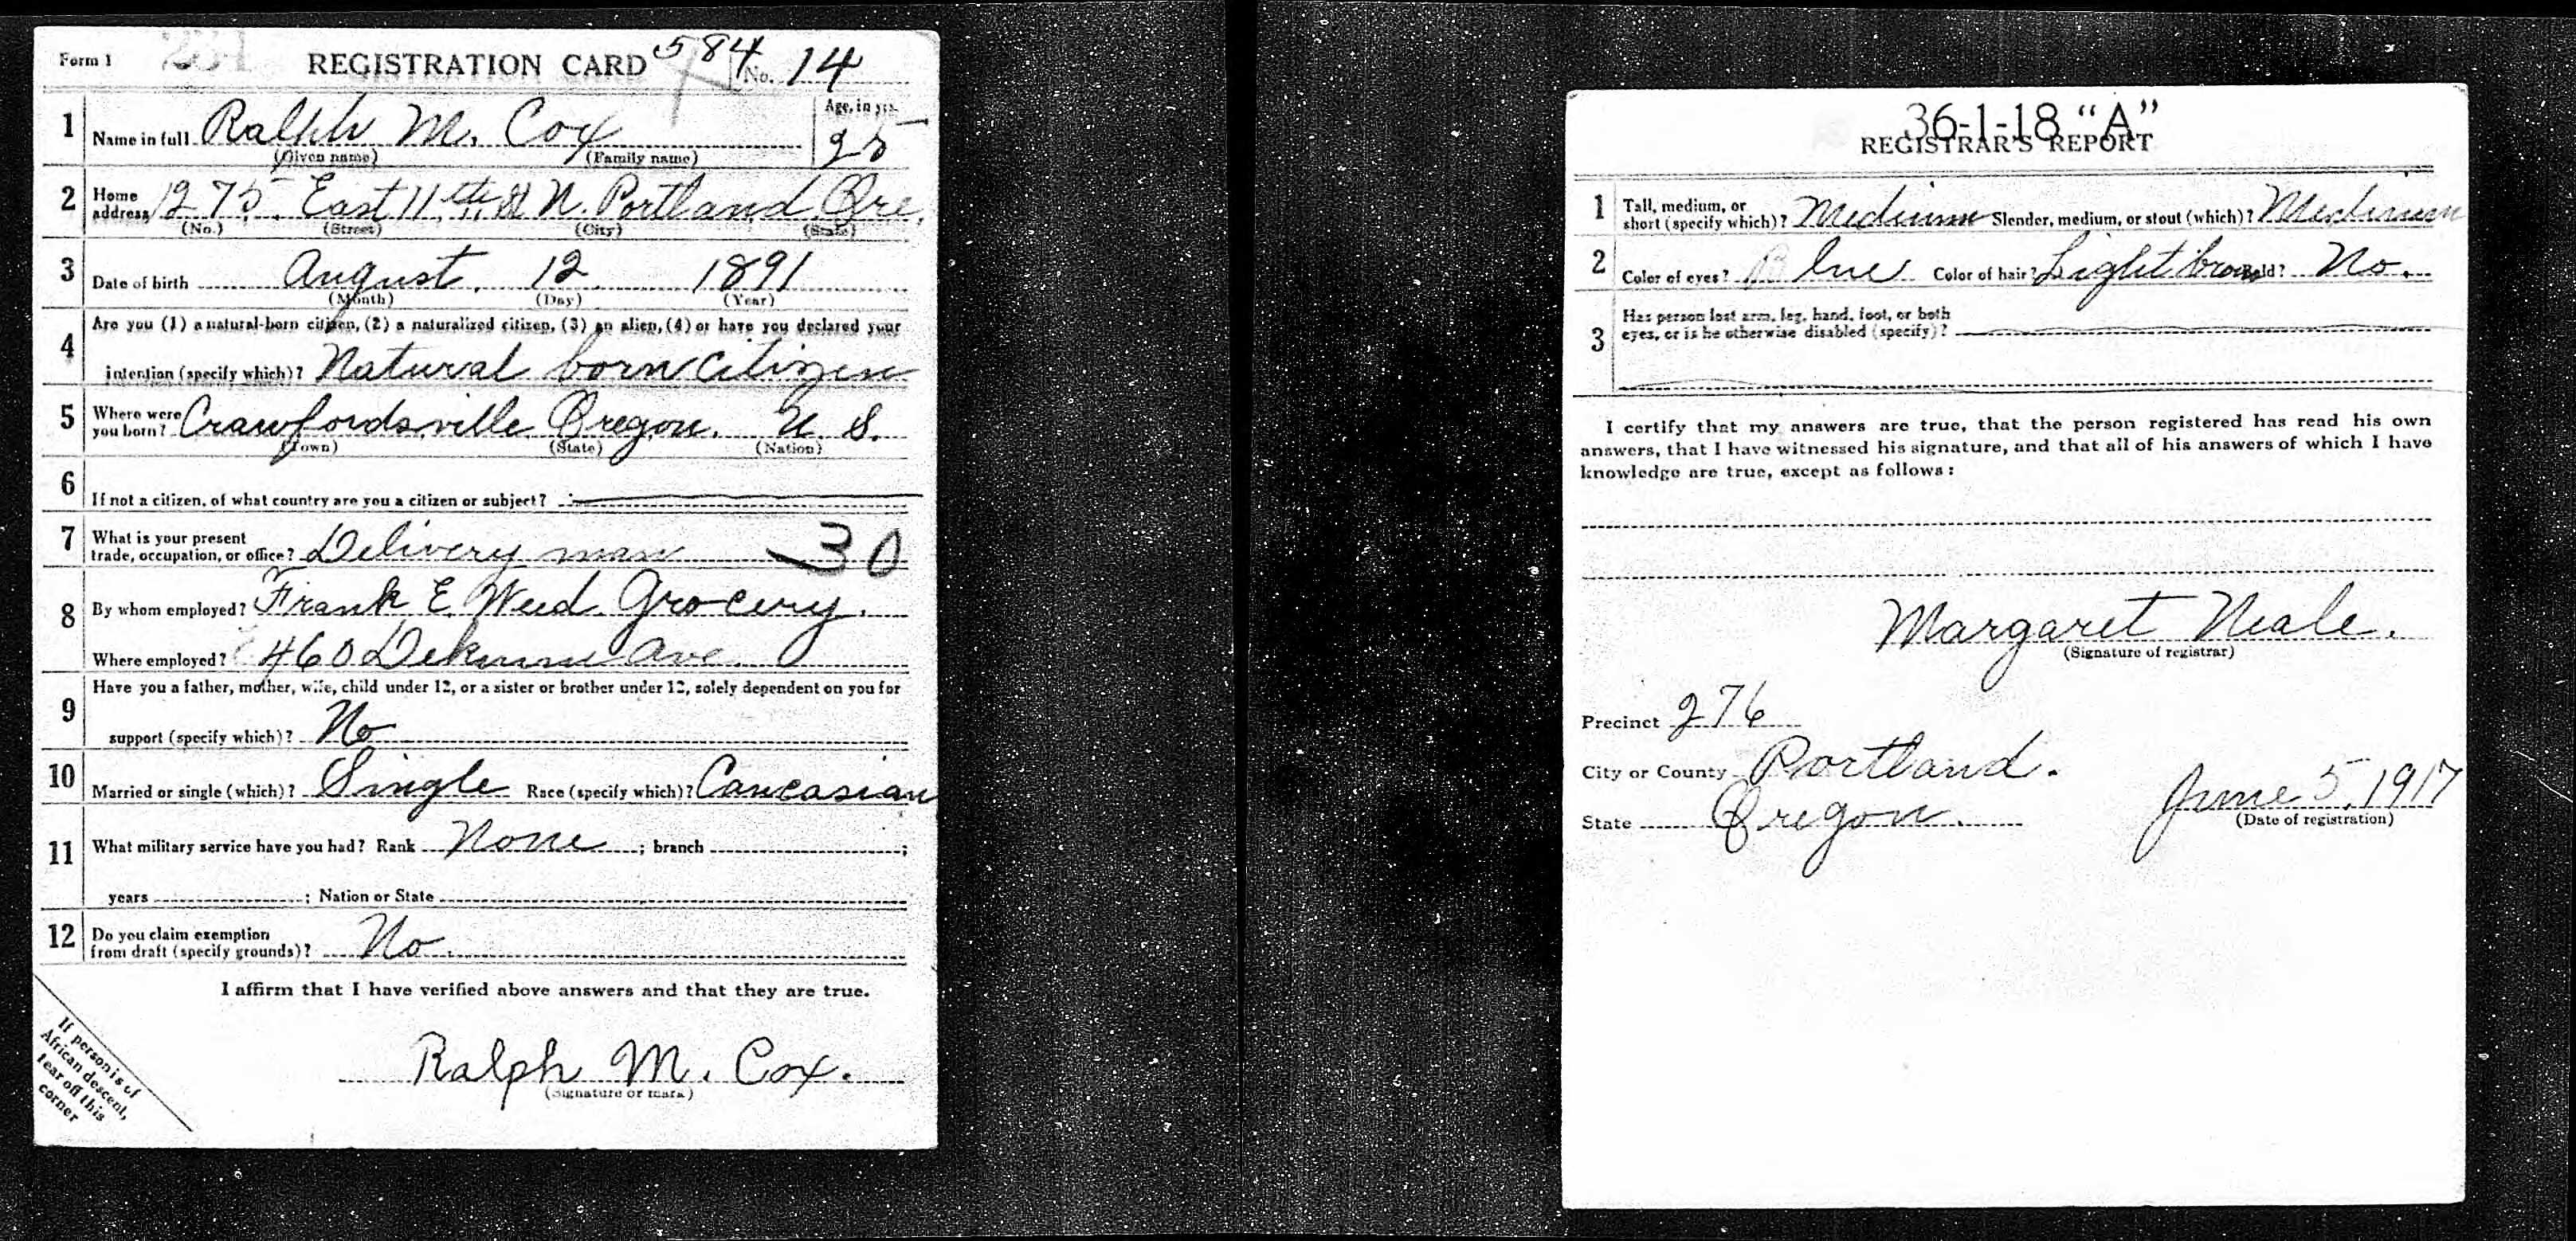 Form 1
REGISTRATION CARD 584 No. 14
1 Name in full Ralph M. Cox Age, in yrs. 25
(Given name) (Family name)
2 Home address 1275 East 11th St N. Portland Ore.
(No.) (Street) (City) (State)
3 Date of birth August 12 1891
(Month) (Day) (Year)
4 Are you (1) a natural-born citizen, (2) a naturalized citizen, (3) an alien, (4) or have you declared your
intention (specify which)? Natural born citizen
5 Where were you born? Crawfordsville Oregon. U. S.
(Town) (State) (Nation)
6 If not a citizen, of what country are you a citizen or subject?
7 What is your present
trade, occupation, or office? Delivery man 30
8 By whom employed? Frank E. Weed Grocery.
Where employed? 460 Dekum Ave
9 Have you a father, mother, wife, child under 12, or a sister or brother under 12, solely dependent on you for
support (specify which)? No
10 Married or single (which)? Single Race (specify which)? Caucasian
11 What military service have you had? Rank None ; branch ;
years ; Nation or State
12 Do you claim exemption
from draft (specify grounds)? No.
I affirm that I have verified above answers and that they are true.
Ralph M. Cox.
(Signature or mark)
If person is of
African descent,
tear off this
corner
36-1-18 "A"
REGISTRAR'S REPORT
1 Tall, medium, or
short (specify which)? Medium Slender, medium, or stout (which)? Medium
2 Color of eyes? Blue Color of hair? Light brown Bald? No.
3 Has person lost arm, leg, hand, foot, or both
eyes, or is he otherwise disabled (specify)?
I certify that my answers are true, that the person registered has read his own
answers, that I have witnessed his signature, and that all of his answers of which I have
knowledge are true, except as follows:
Margaret Neale.
(Signature of registrar)
Precinct 276
City or County Portland.
State Oregon. June 5, 1917
(Date of registration)